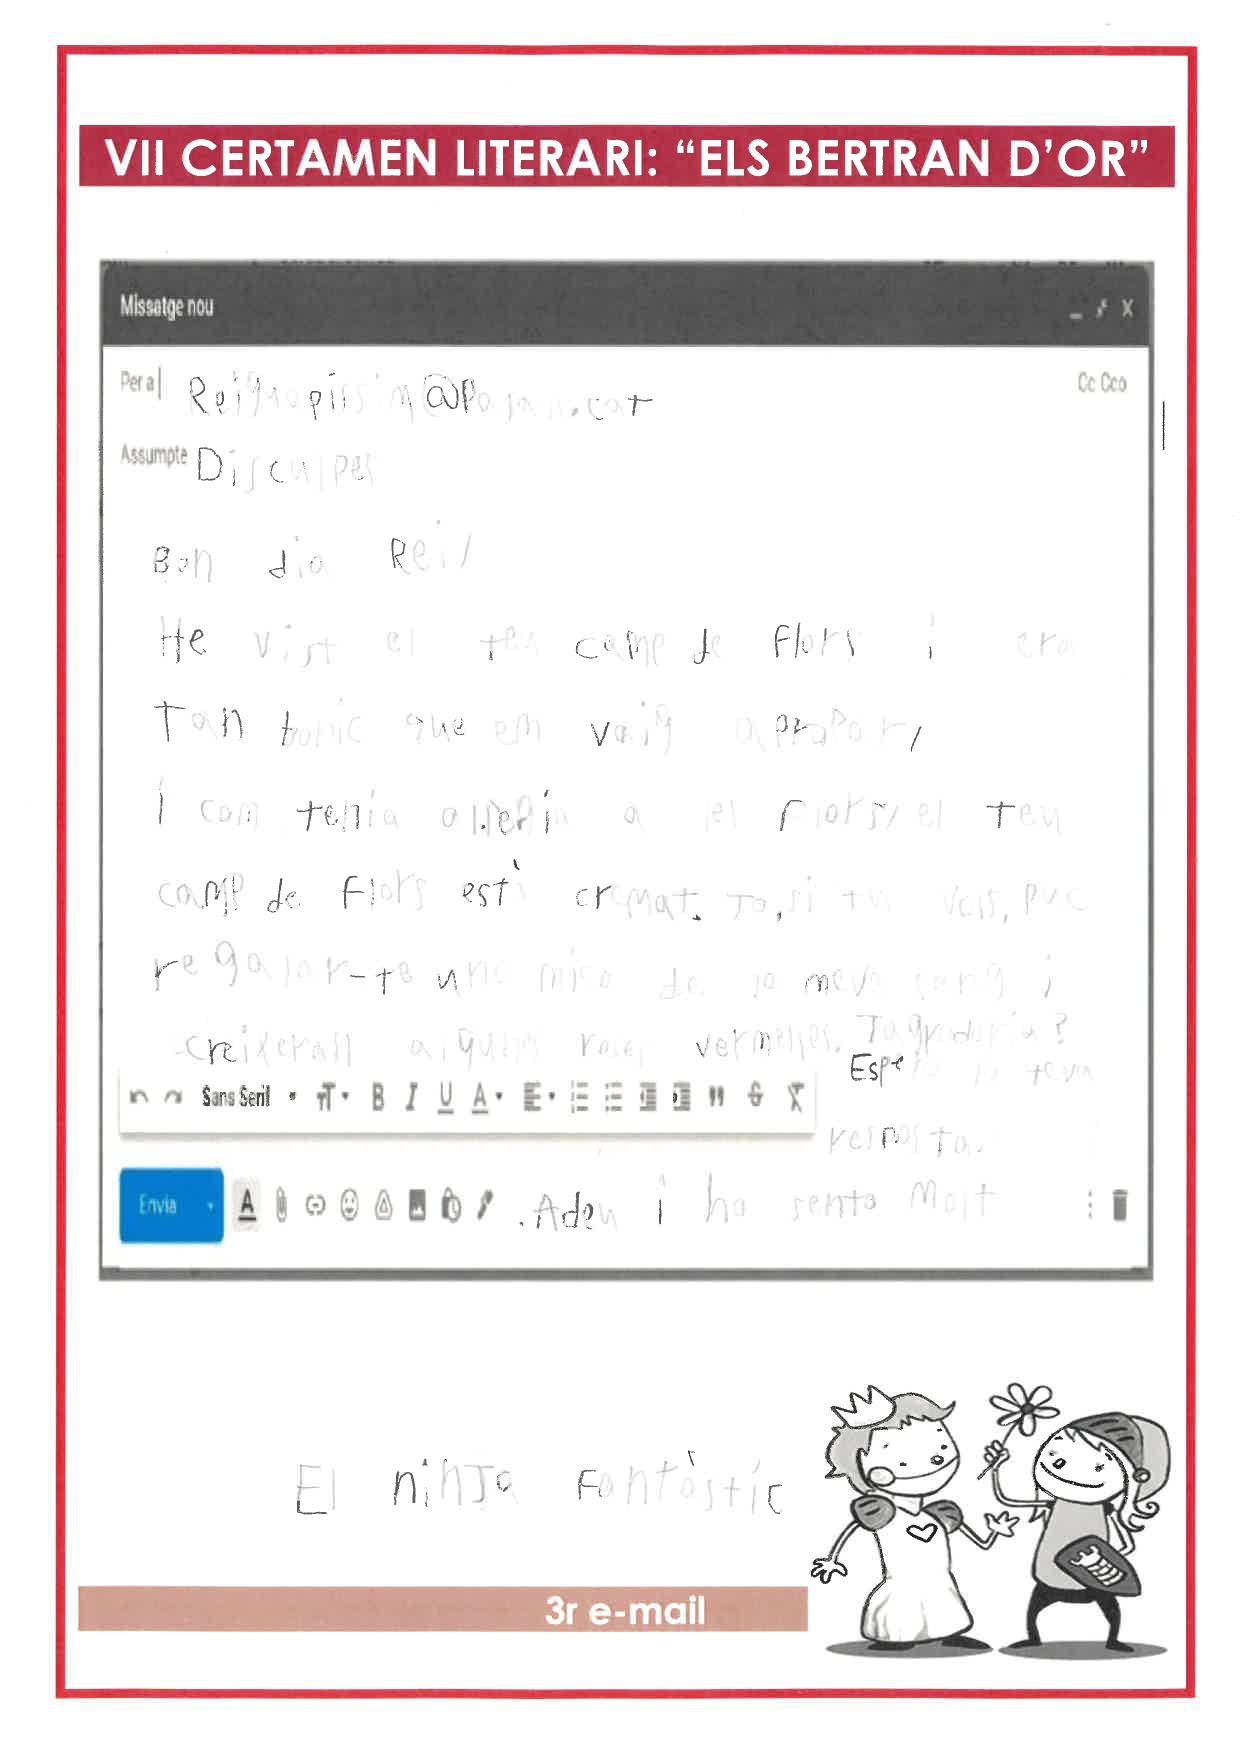 VII CERTAMEN LITERARI: “ELS BERTRAN D’OR”
Missatge nou
Per a
Cc Cco
Assumpte Disculpes
Bon dia Rei,
He vist el teu camp de flors i era
Tan bonic que em vaig apropar,
i com tenia al·lèrgia a les flors, el teu
camp de flors està cremat. Jo, si tu vols, puc
regalar-te una mica de la meva sang i
creixeran algunes roses vermelles. T'agradaria?
Espero la teva
Sans Serif
resposta.
Envia
Adeu i ho sento molt
El ninja Fantàstic
3r e-mail